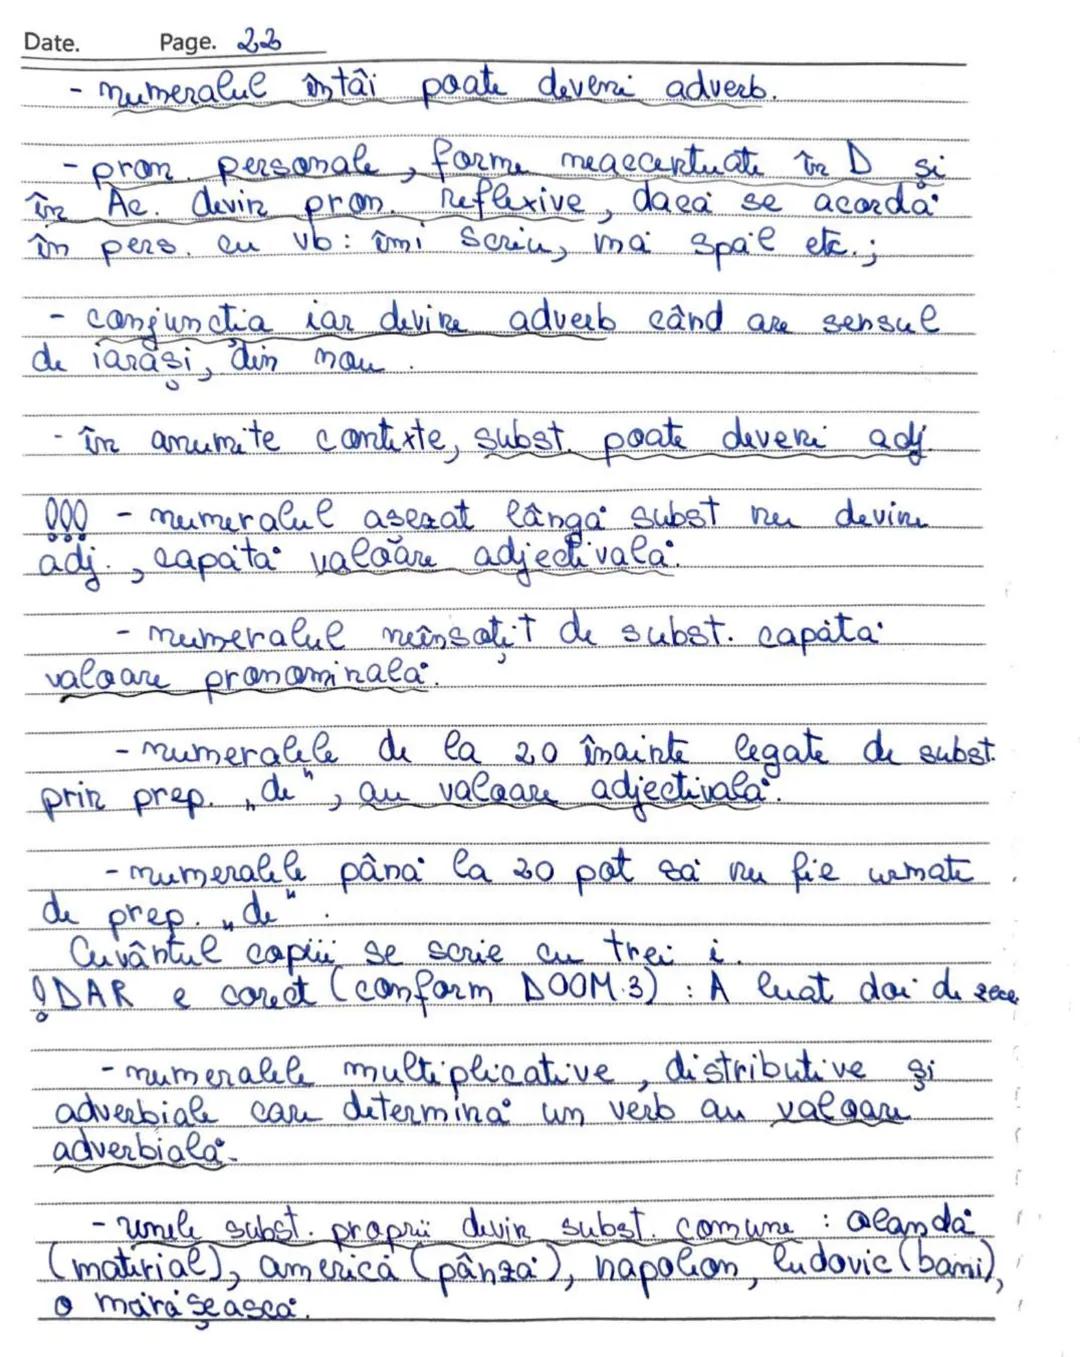 Date. Page. 22
- numeralul întâi poate deveni adverb.
- pron. personale, forme neaccentuate în D și
în Ac. devin pron. reflexive, dacă se acordă
în pers. cu vb: îmi scriu, mă spăl etc.;
- conjunctia iar devine adverb când are sensul
de iarăși, din nou.
- în anumite contexte, subst. poate deveni adj.
!!! - numeralul asezat lângă subst nu devine
adj., capătă valoare adjectivală.
- numeralul neînsoțit de subst. capătă
valoare pronominală.
- numeralele de la 20 înainte legate de subst.
prin prep. „de", au valoare adjectivală.
- numeralele până la 20 pot să nu fie urmate
de prep. „de".
Cuvântul copiii se scrie cu trei i.
! DAR e corect (conform DOOM.3) : A luat doi de zece
- numeralele multiplicative, distributive și
adverbiale care determină un verb au valoare
adverbială.
- unele subst. proprii devin subst. comune : olandă
(material), americă (pânză), napoleon, ludovic (bani),
o mărășească.